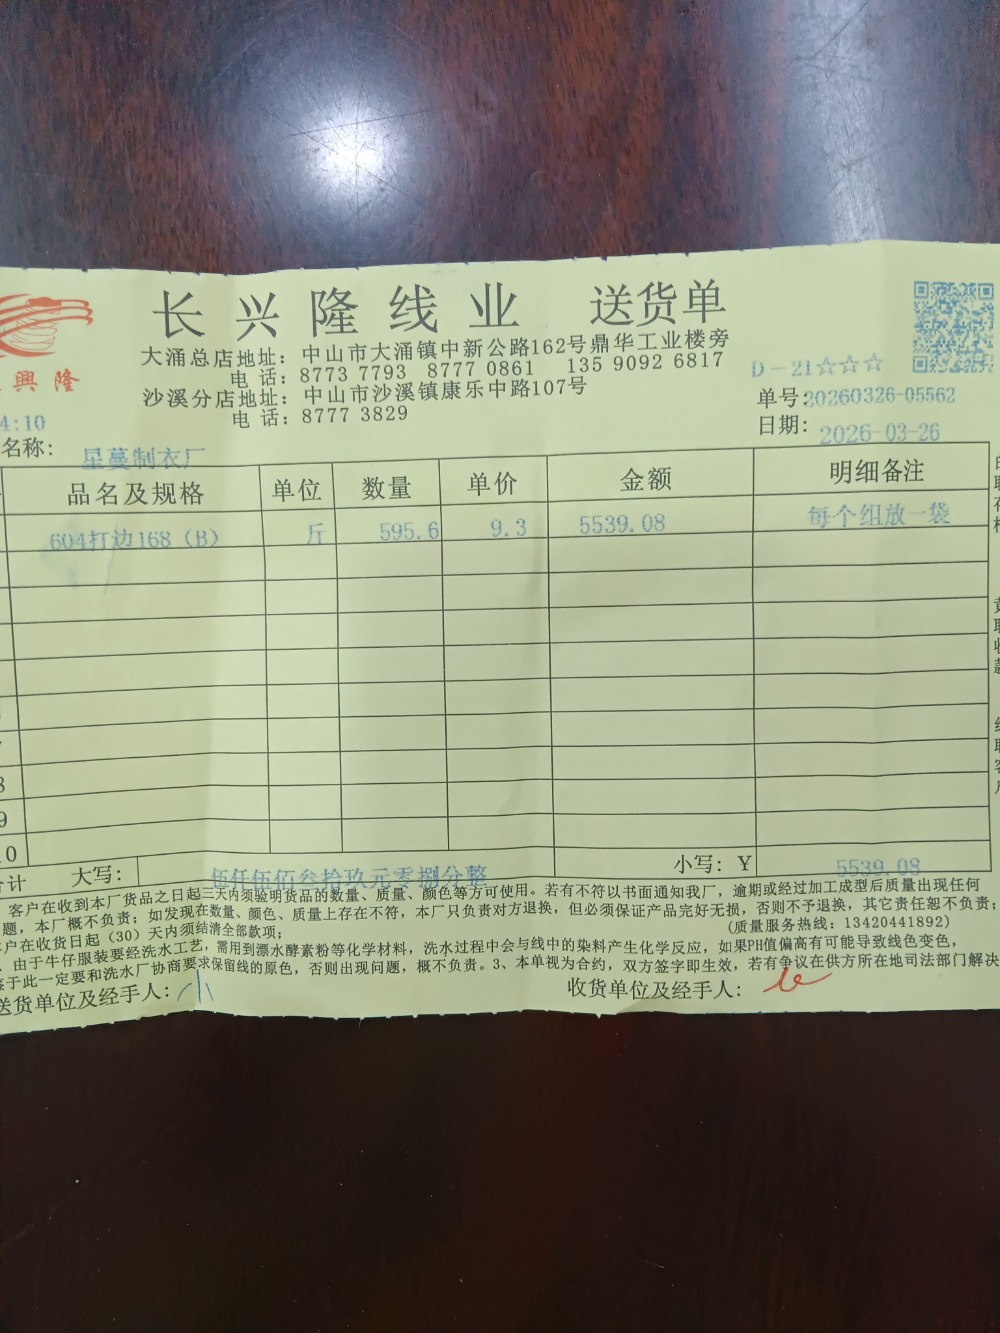 长兴隆线业 送货单
興隆
大涌总店地址：中山市大涌镇中新公路162号鼎华工业楼旁
电话：8773 7793 8777 0861 135 9092 6817
沙溪分店地址：中山市沙溪镇康乐中路107号
电话：8777 3829
D-21☆☆☆
单号：20260326-05562
日期：2026-03-26
4:10
名称：星蔓制衣厂
品名及规格 单位 数量 单价 金额 明细备注
604打边168（B） 斤 595.6 9.3 5539.08 每个组放一袋
8
9
10
合计 大写：伍仟伍佰叁拾玖元零捌分整 小写：￥ 5539.08
客户在收到本厂货品之日起三天内须验明货品的数量、质量、颜色等方可使用。若有不符以书面通知我厂，逾期或经过加工成型后质量出现任何
题，本厂概不负责；如发现在数量、颜色、质量上存在不符，本厂只负责对方退换，但必须保证产品完好无损，否则不予退换，其它责任恕不负责；
户在收货日起（30）天内须结清全部款项； (质量服务热线：13420441892)
由于牛仔服装要经洗水工艺，需用到漂水酵素粉等化学材料，洗水过程中会与线中的染料产生化学反应，如果PH值偏高有可能导致线色变色，
于此一定要和洗水厂协商要求保留线的原色，否则出现问题，概不负责。3、本单视为合约，双方签字即生效，若有争议在供方所在地司法部门解决
送货单位及经手人： 收货单位及经手人：